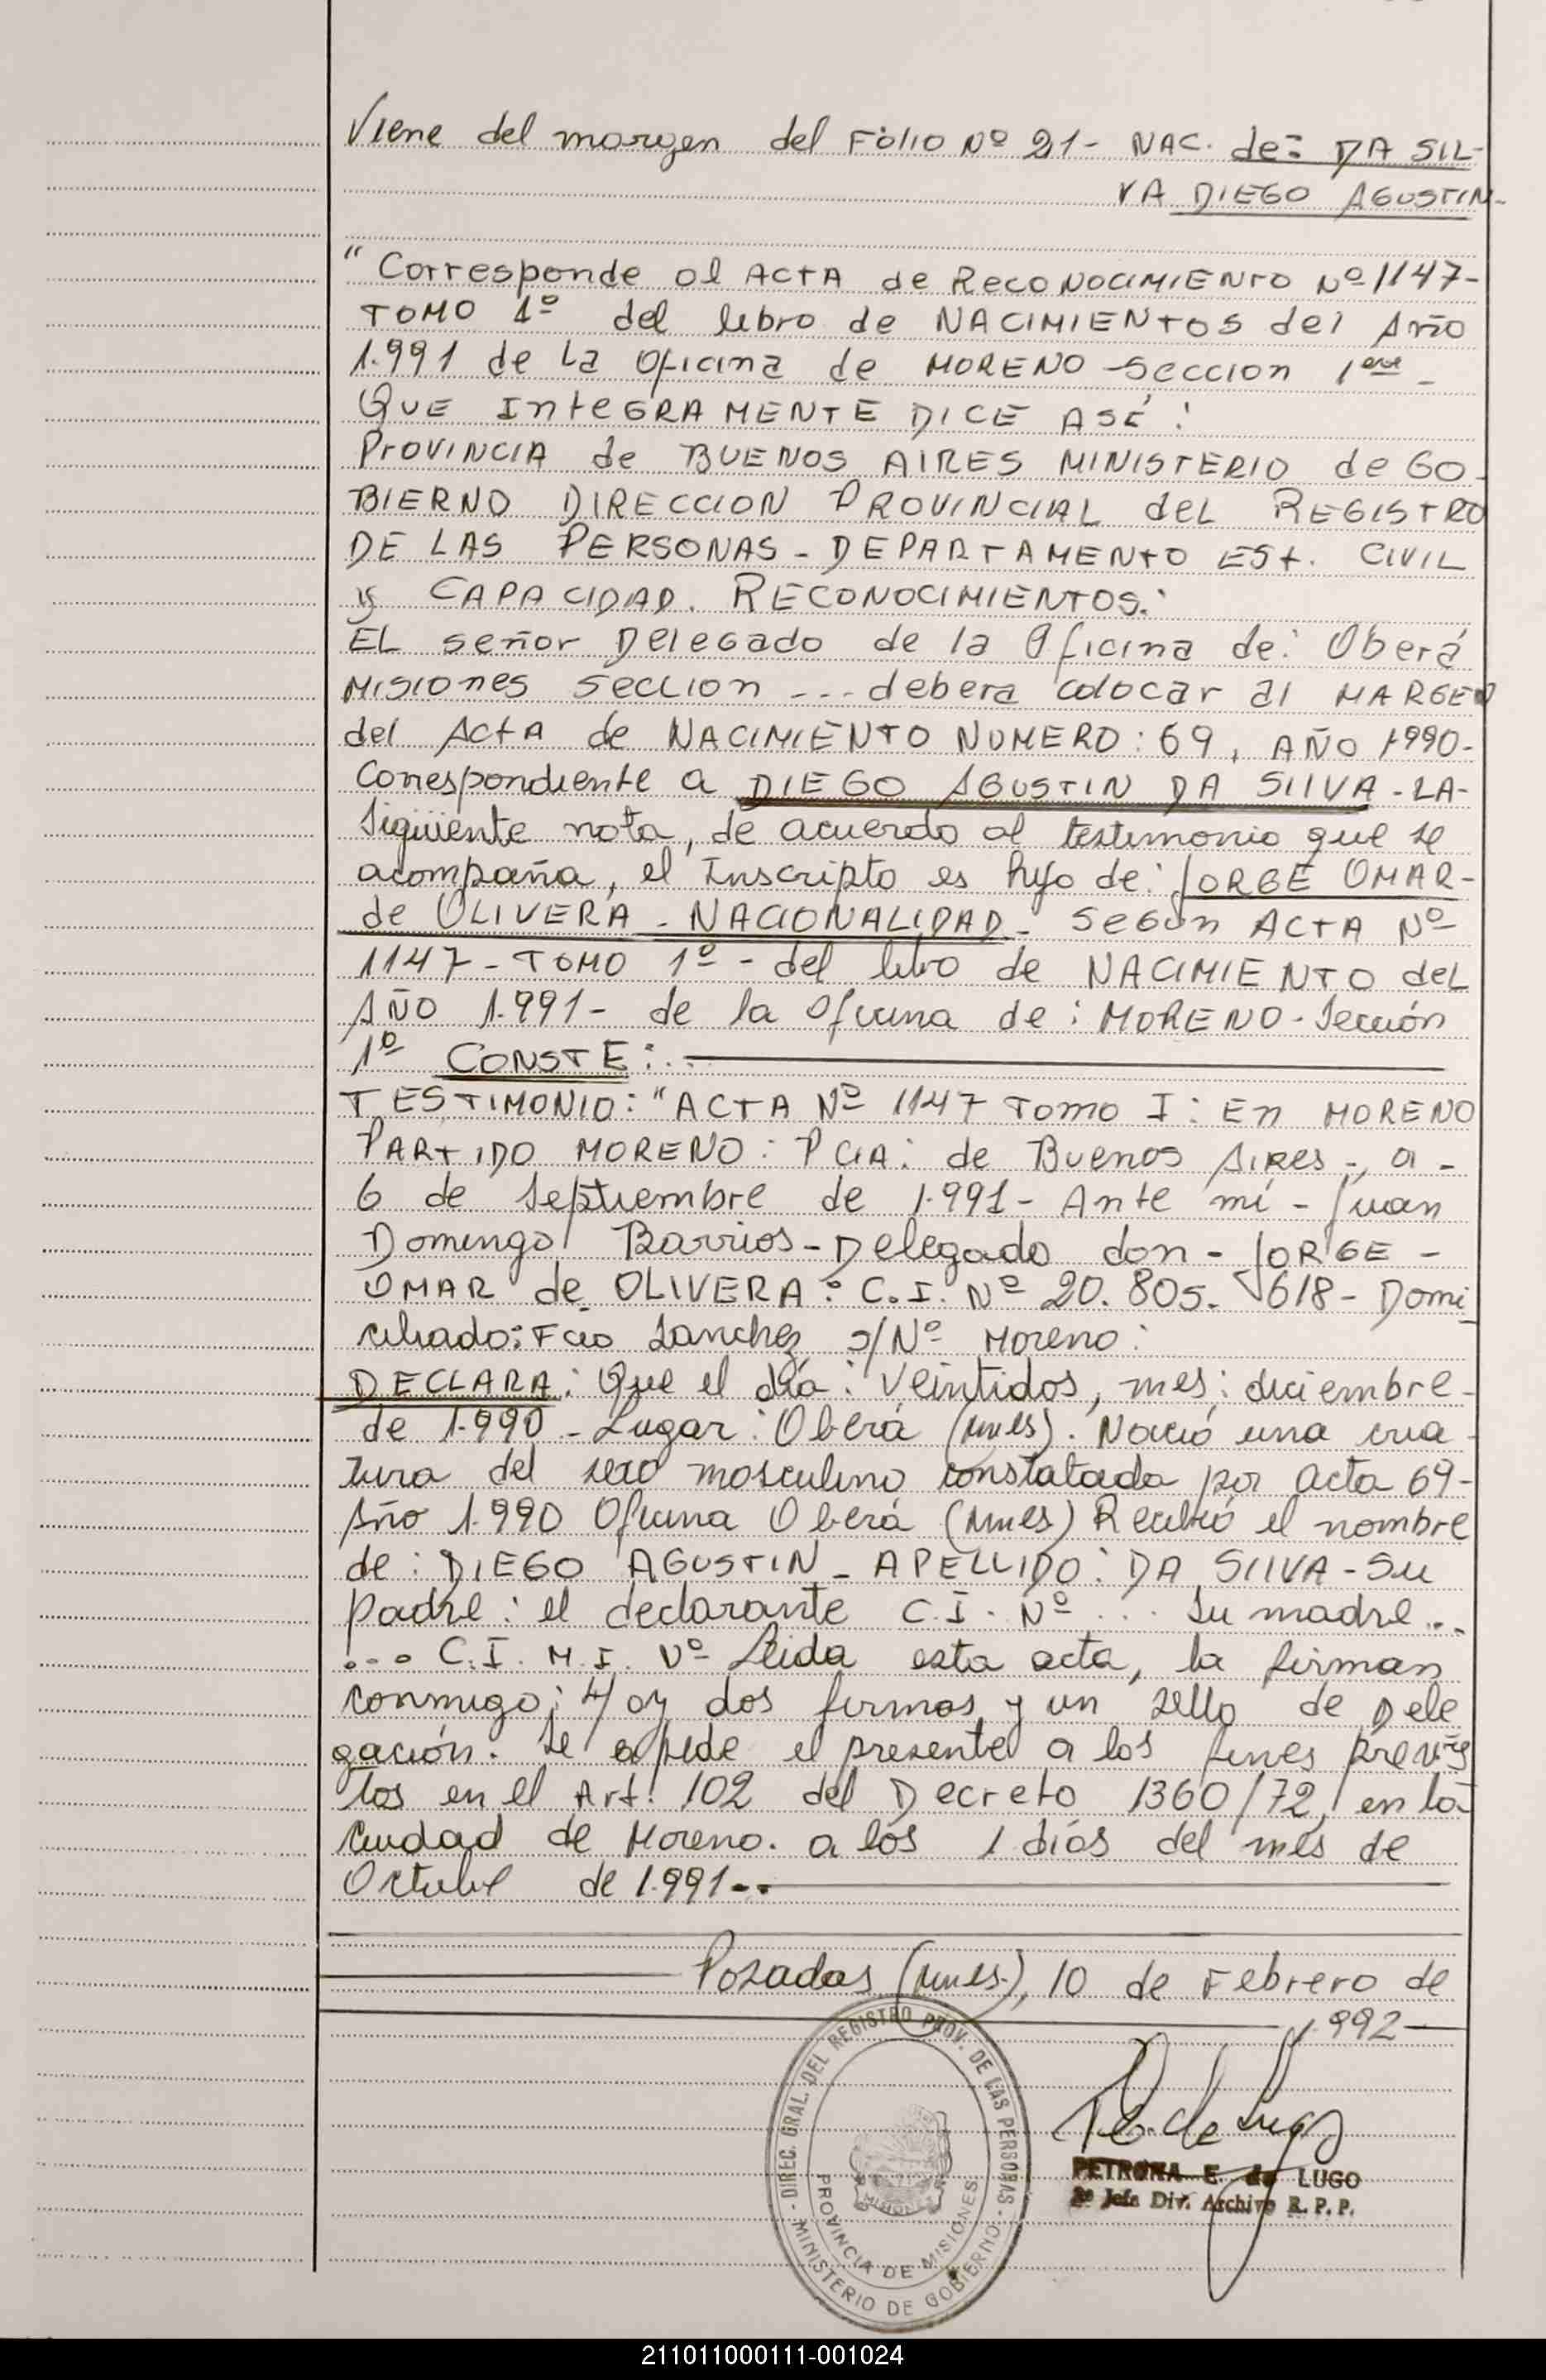 Viene del margen del Folio Nº 21- NAC. de: DA SIL-
VA DIEGO AGUSTIN-
"Corresponde al ACTA de RECONOCIMIENTO Nº 1147-
TOMO 1º del libro de NACIMIENTOS del Año
1.991 de La Oficina de MORENO Seccion 1era -
QUE INTEGRAMENTE DICE ASÉ:
PROVINCIA de BUENOS AIRES MINISTERIO de GO-
BIERNO DIRECCION PROVINCIAL del REGISTRO
DE LAS PERSONAS - DEPARTAMENTO EST. CIVIL
y CAPACIDAD. RECONOCIMIENTOS.
EL señor Delegado de la Oficina de: Oberá
MISIONES seccion --- debera colocar al MARGEN
del ACTA de NACIMIENTO NUMERO: 69, AÑO 1990-
Correspondiente a DIEGO AGUSTIN DA SIIVA - LA-
siguiente nota, de acuerdo al testimonio que se
acompaña, el Inscripto es hijo de: JORGE OMAR-
de OLIVERA - NACIONALIDAD - Según ACTA Nº
1147 - TOMO 1º - del libro de NACIMIENTO del
AÑO 1.991 - de la Oficina de: MORENO - Sección
1º CONSTE:..
TESTIMONIO: "ACTA Nº 1147 Tomo I: En MORENO
PARTIDO MORENO: PCIA: de Buenos Aires -, a -
6 de Septiembre de 1.991 - Ante mi - Juan
Domingo Barrios - Delegado don - JORGE -
OMAR de OLIVERA: C.I. Nº 20.805.618 - Domi
ciliado: Fcio Sanchez s/Nº Moreno:
DECLARA: Que el día: Veintidos, mes: diciembre-
de 1.990 - Lugar: Oberá (Mnes). Nació una cria-
tura del sexo masculino constatada por acta 69-
Año 1.990 Oficina Oberá (Mnes) Recibió el nombre
de: DIEGO AGUSTIN - APELLIDO: DA SIIVA - Su
padre: el declarante C.I. Nº ... Su madre...
... C.I. M.I. Nº Leida esta acta, la firman
conmigo: Hay dos firmas y un sello de Dele
gación. Se expide el presente a los fines previs
tos en el Art. 102 del Decreto 1360/72, en la
ciudad de Moreno. a los 1 días del mes de
Octubre de 1.991--
Posadas (Mnes.), 10 de Febrero de
1.992
DIREC. GRAL. DEL REGISTRO PROV. DE LAS PERSONAS
PROVINCIA DE MISIONES
MISIONES
MINISTERIO DE GOBIERNO
P. E. de Lugo
PETRONA E. de LUGO
2º Jefe Div. Archivo R. P. P.
211011000111-001024